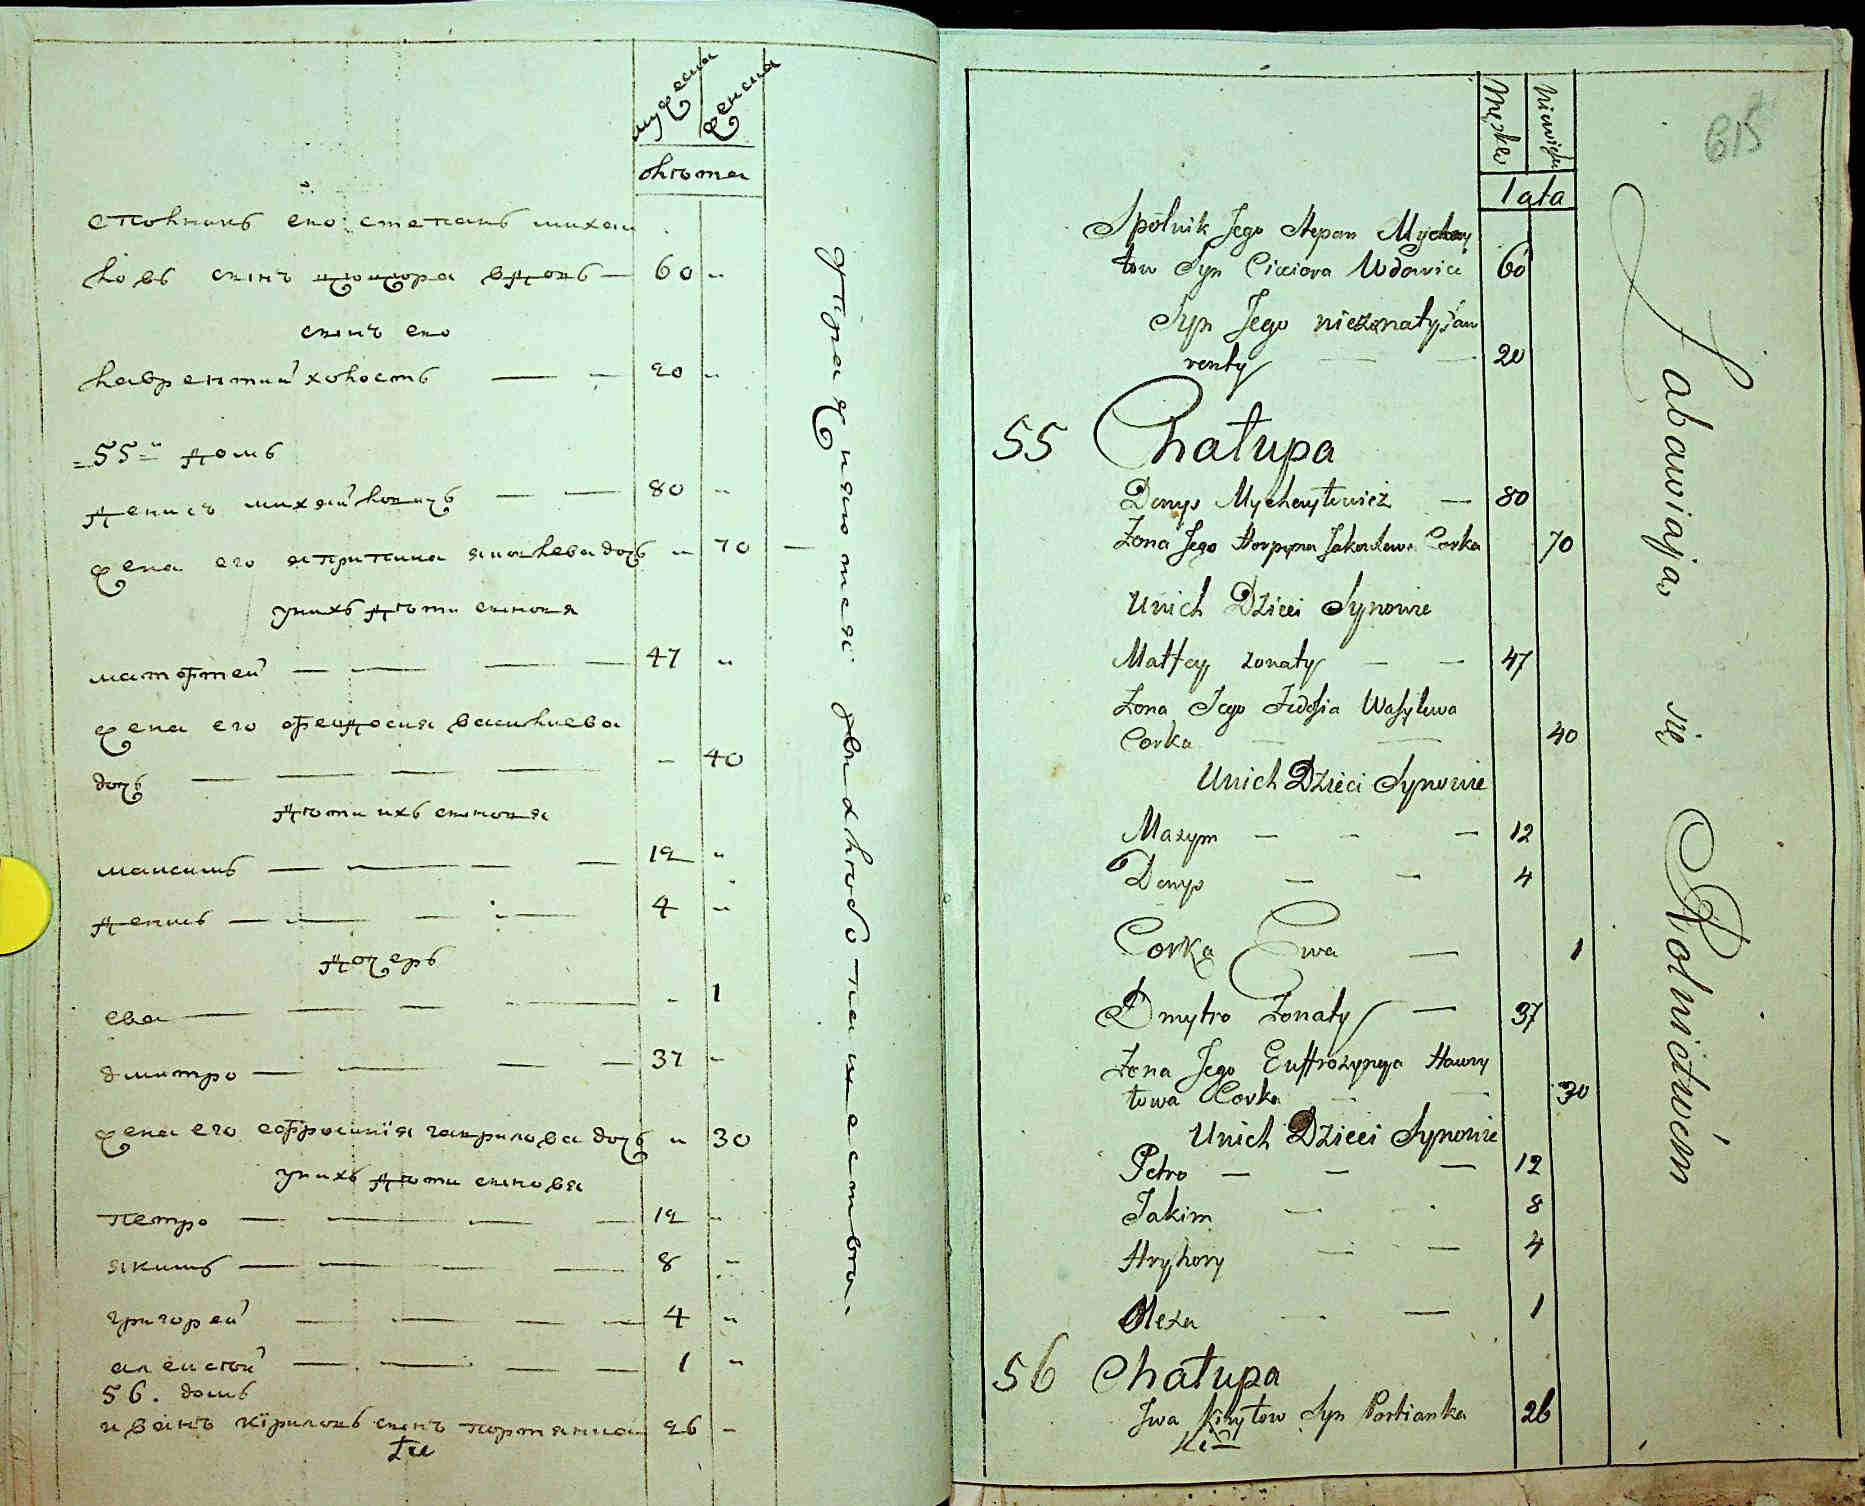 мужеска
женска
лѣта
спольникъ его степанъ михаи
ловъ сынъ вдовъ — 60 „
сынъ его
лаврентий холостъ — — 20 „
55й домъ
денисъ михайловичъ — — 80 „
жена его агрипина яковлева дочь „ 70
унихъ дѣти сыновя
матофтей — — — — 47 „
жена его офеодосия василиева
дочь — — — — - 40
дѣти ихъ сыновя
максимъ — — — — 12 „
денисъ — — — — 4 „
дочерь
ева — — — — - 1
дмитро — — — — 37 -
жена его ефросинїя гаврилова дочь „ 30
унихъ дѣти сыновя
петро — — — — 12 -
якимъ — — — — 8 -
григорей — — — — 4 „
алексѣй — — — — 1 „
56. домъ
иванъ кїриловъ сынъ портянка 26 -
Męska
Niewieska
lata
Spolnik Jego Stepan Mychay
łow Syn Udowiec 60
Syn Jego nieżonaty Ław
renty — — 20
55 Chałupa
Denys Mychayłowicz — 80
Żona Jego Horpyna Jakowlowa Corka 70
Unich Dzieci Synowie
Matfey żonaty — — 47
Żona Jego Fedosia Wasylowa
Corka — — 40
Unich Dzieci Synowie
Maxym — - — 12
Denys — — 4
Corka Ewa — 1
Dmytro Żonaty — 37
Żona Jego Euffrozynya Hawry
łowa Corka — — 30
Unich Dzieci Synowie
Petro — — — 12
Jakim — - 8
Hryhory — — 4
Olexa - — 1
56 Chałupa
Iwa Kiryłow Syn Portianka 26
Zabawiają się Rolnictwem